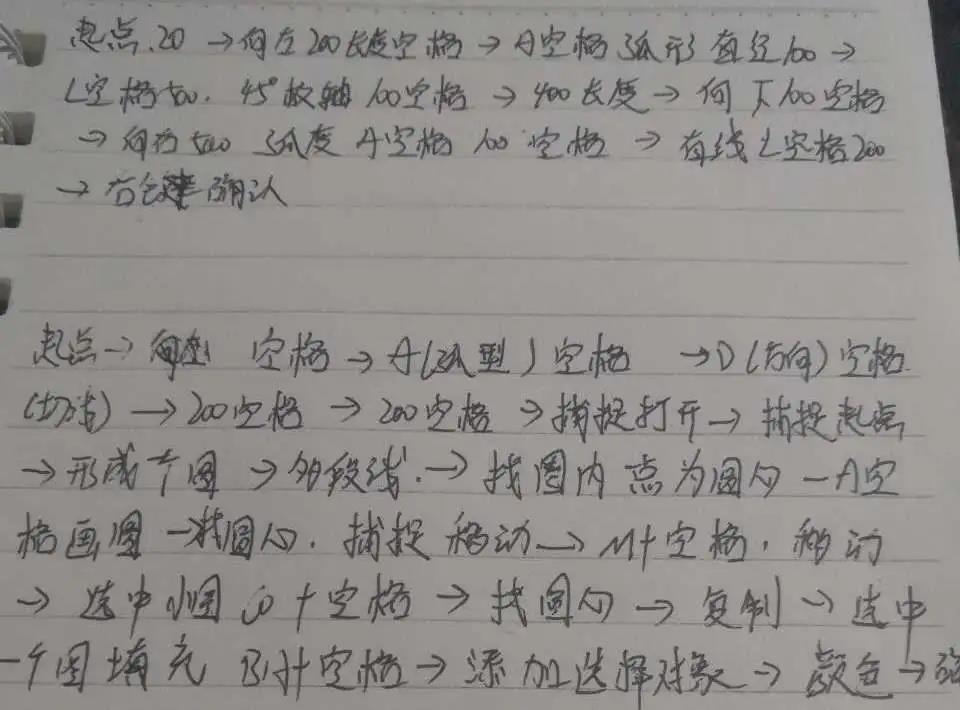 起点.20 →向左200长度空格→A空格 弧形 直径100→
L空格500. 45° 100空格 →400长度→向下100空格
→向右500 弧度 A空格 100 空格 → 直线L空格200
→右键确认
起点→ 空格→A(弧型)空格 →D(方向)空格
→200空格→200空格→捕捉打开→捕捉起点
→形成个圆→多段线.→找圆内点为圆心—A空
格画圆→找圆心.捕捉移动→M+空格.移动
→选中小圆 co+空格→找圆心→复制→选中
一个圆填充 BH+空格→添加选择对象→颜色→